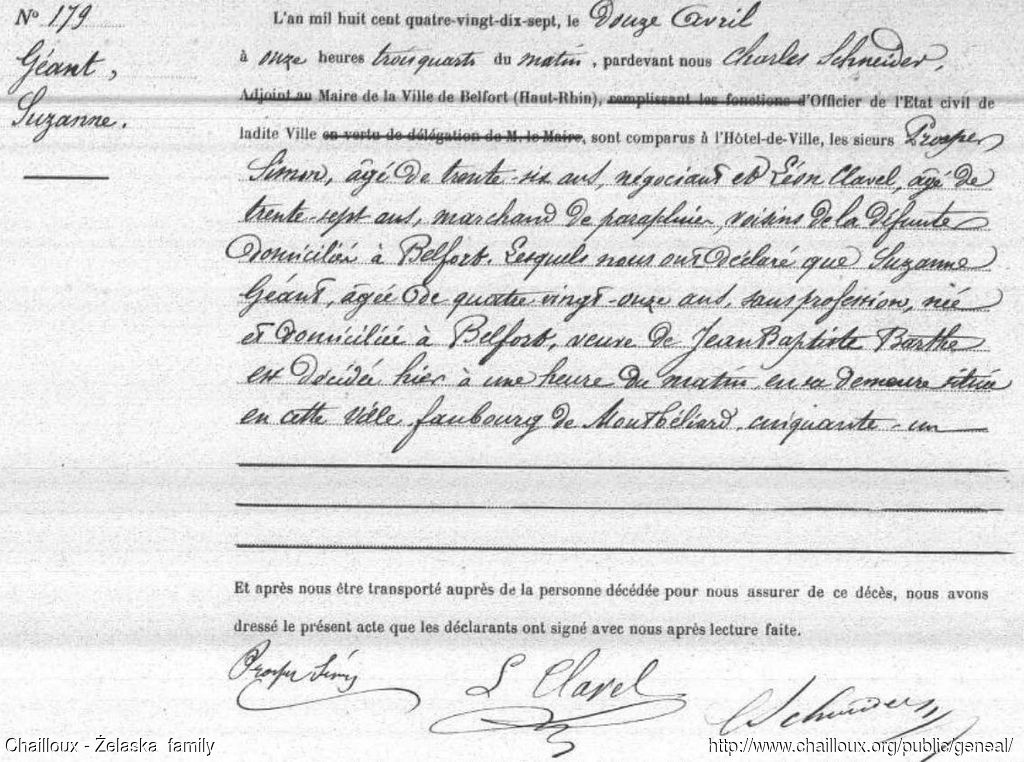 N° 179
Géant,
Suzanne.
L'an mil huit cent quatre-vingt-dix-sept, le Douze Avril
à onze heures trois quarts du matin, pardevant nous Charles Schneider,
Adjoint au Maire de la Ville de Belfort (Haut-Rhin), remplissant les fonctions d'Officier de l'Etat civil de
ladite Ville en vertu de délégation de M. le Maire, sont comparus à l'Hôtel-de-Ville, les sieurs Prosper
Simon, âgé de trente-six ans, négociant et Léon Clavel, âgé de
trente-sept ans, marchand de parapluies, voisins de la défunte
domiciliés à Belfort. Lesquels nous ont déclaré que Suzanne
Géant, âgée de quatre vingt-onze ans, sans profession, née
et domiciliée à Belfort, veuve de Jean Baptiste Barthe
est décédée hier à une heure du matin, en sa demeure située
en cette ville faubourg de Montbéliard, cinquante-un
Et après nous être transporté auprès de la personne décédée pour nous assurer de ce décès, nous avons
dressé le présent acte que les déclarants ont signé avec nous après lecture faite.
Prosper Simon L Clavel C Schneider
Chailloux - Żelaska family http://www.chailloux.org/public/geneal/